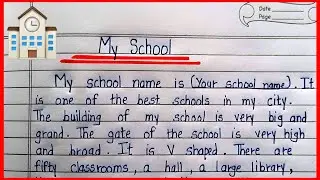 Date
Page
My School
My school name is (Your school name). It
is one of the best schools in my city.
The building of my school is very big and
grand. The gate of the school is very high
and broad. It is V shaped. There are
fifty classrooms, a hall, a large library,